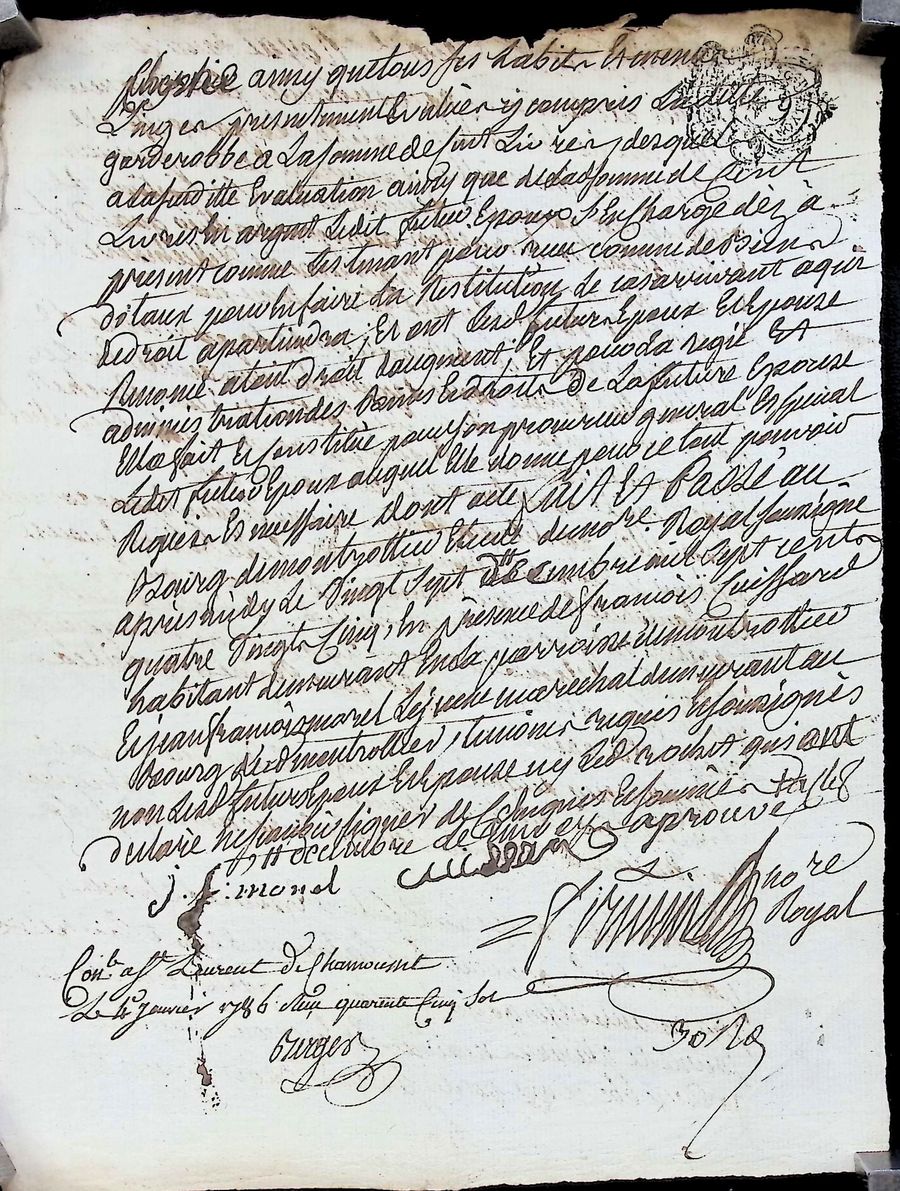 ainsy que tous ses habits et menu
Linger presentement Evalués y compris Ladite
garderobbe a La somme de cent Livres, desquels
a la susditte Evaluation ainsy que de Ladsomme de Cent
Livres En argent Ledit futur Epoux S'En Charge dèz à
présent comme Les tenant pour reçu comme de Biens
dotaux pour En faire La Restitution Le cas arrivant a qui
de droit apartiendra, Et ont Lesd. futurs Epoux Et Epouse
Renoncé a tout droit daugment, Et pour La regie Et
administration des Biens Et droits de La future Epouse
Ella fait Et Constitué pour son procureur general Et special
Ledit futur Epoux auquel Elle donne pour ce tout pouvoir
Requis Et necessaire dont acte fait Et Passé au
Bourg de montrottier Etude du no.re Royal soussigné
après midy Le Vingt Sept Decembre mil Sept cent
quatre Vingt Cinq, En présence de françois Cuissard
habitant demeurant En La parroisse de montrottier
Et jean françois morel Le jeune marechal demeurant au
Bourg dud. montrottier, temoins requis Et soussignés
non Lesd. futurs Epoux Et Epouse ny Led. rochet qui ont
déclaré ne savoir signer de Ce Enquis Et sommés
decembre aprouvé
j. f. morel Cuissard
Firmin no.re
Royal
Con.lé a St. Laurent de Chamousset
Le 4e janvier 1786 Reçu quarente Cinq Sol
Burger